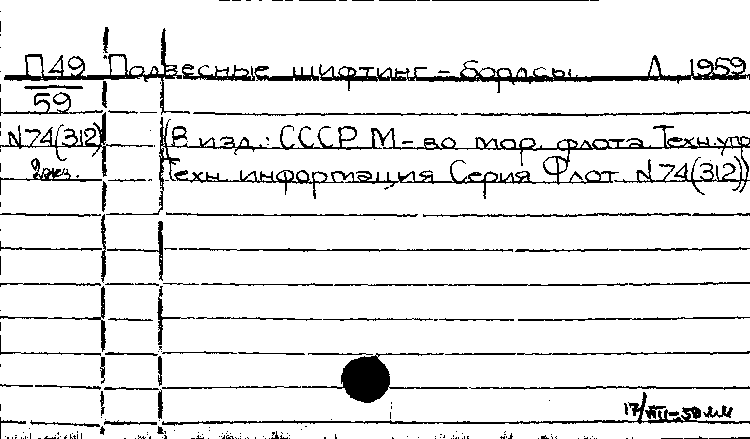 П49 Подвесные шифтинг-бордсы. Л., 1959
59
N74(312) (В изд.: СССР М-во мор. флота Техн. упр
2экз. Техн. информация Серия Флот. N74(312))
17/VIII-59